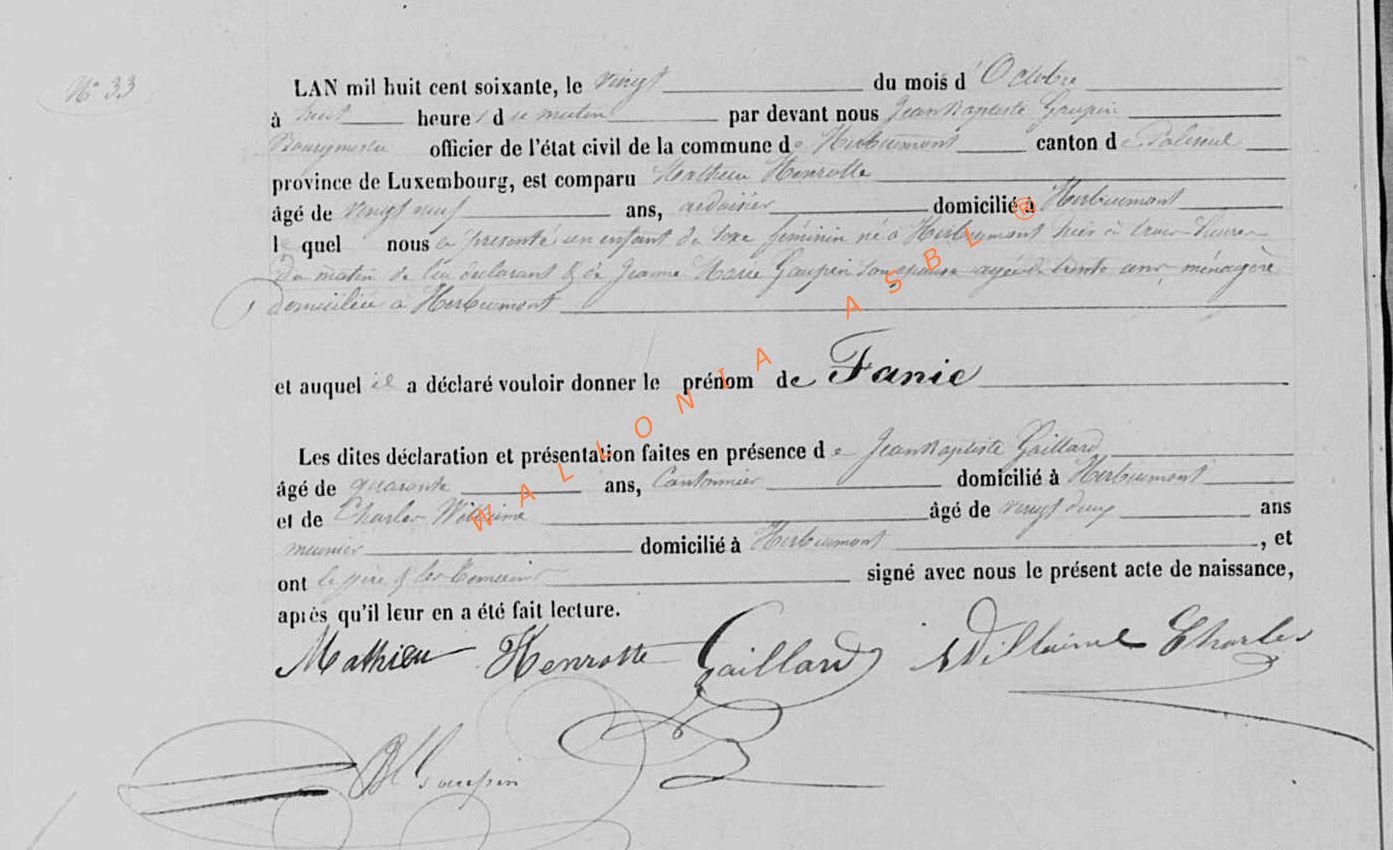 N° 33
LAN mil huit cent soixante, le vingt du mois d'Octobre
à huit heures du matin par devant nous Jean Baptiste Gaupin
Bourgmestre officier de l'état civil de la commune de Herbeumont canton de Paliseul
province de Luxembourg, est comparu Mathieu Henrotte
âgé de vingt neuf ans, ardoisier domicilié à Herbeumont
le quel nous a présenté un enfant du sexe féminin né à Herbeumont hier à trois heures
du matin de lui déclarant & de Jeanne Marie Gaupin son épouse agée de trente ans ménagère
domiciliée à Herbeumont
et auquel il a déclaré vouloir donner le prénom de Fanie
Les dites déclaration et présentation faites en présence de Jean Baptiste Gaillard
âgé de quarante ans, Cantonnier domicilié à Herbeumont
et de Charles Willaime âgé de vingt deux ans
meunier domicilié à Herbeumont, et
ont le père & les témoins signé avec nous le présent acte de naissance,
après qu'il leur en a été fait lecture.
Mathieu Henrotte Gaillard Willaime Charles
Gaupin
WALLONIA ASBL ®